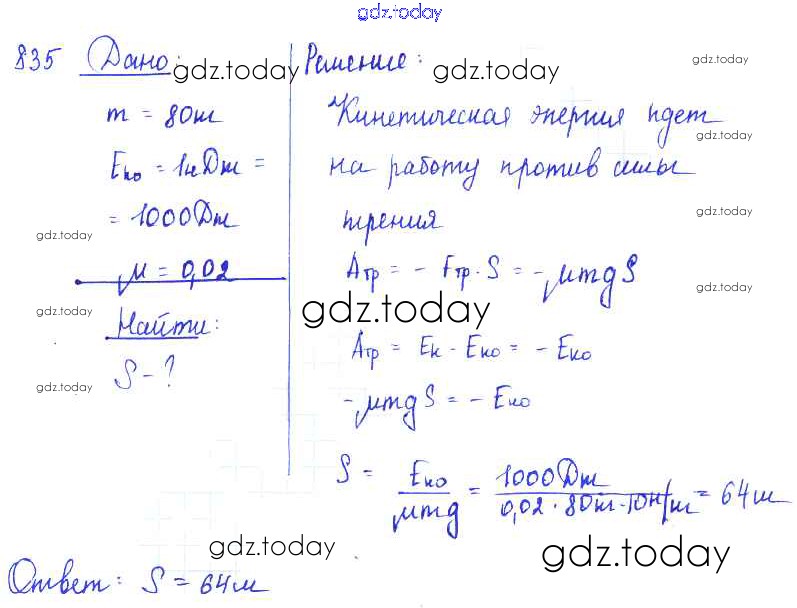 gdz.today
835 Дано:
m = 80кг
Eко = 1кДж =
= 1000Дж
μ = 0,02
Найти:
S - ?
Решение:
Кинетическая энергия идет
на работу против силы
трения
Aтр = - Fтр · S = - μmg S
Aтр = Eк - Eко = - Eко
- μmg S = - Eко
S = Eко / μmg = 1000Дж / 0,02 · 80кг · 10Н/кг = 64м
Ответ: S = 64м
gdz.today
gdz.today
gdz.today
gdz.today
gdz.today
gdz.today
gdz.today
gdz.today
gdz.today
gdz.today
gdz.today
gdz.today